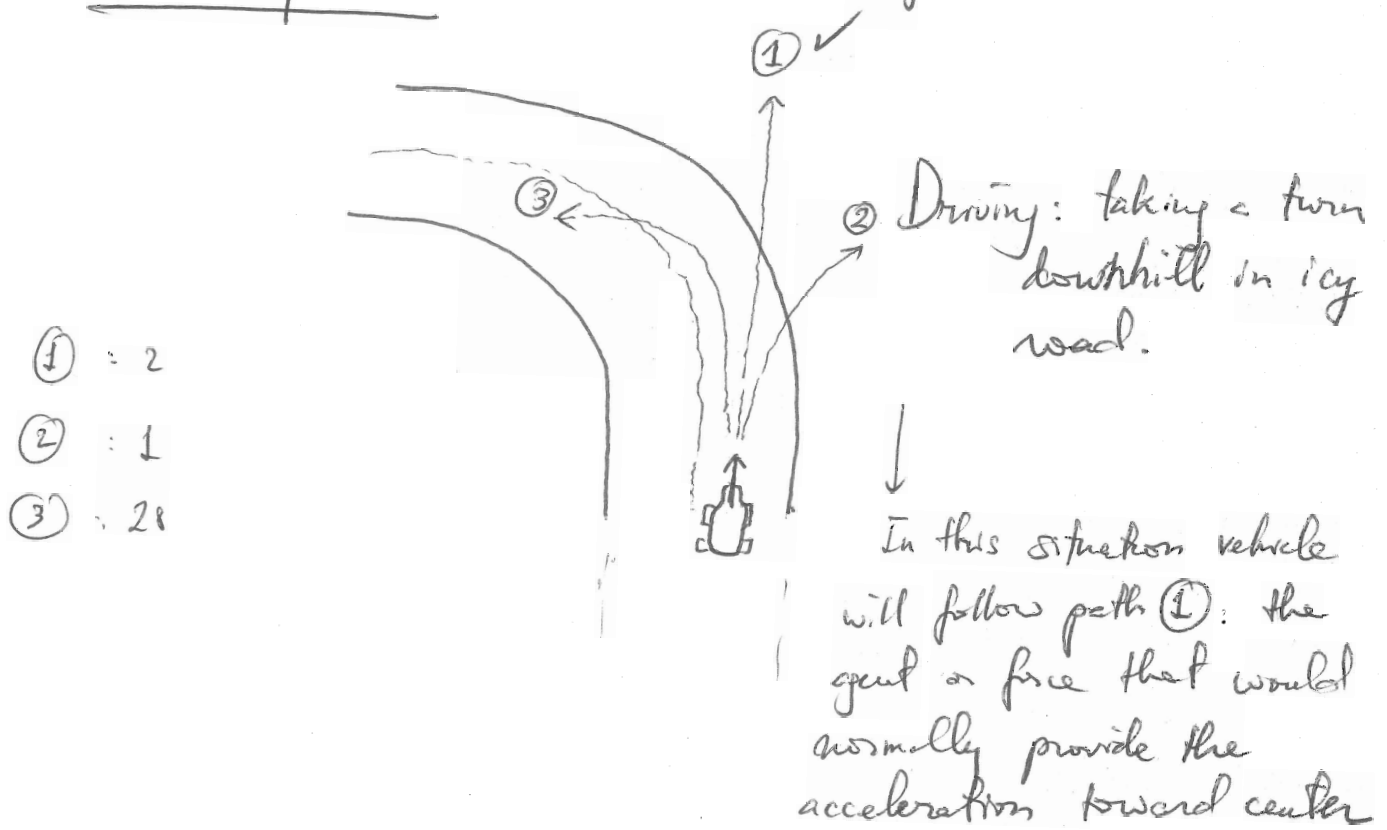 ① ✓
③
② Driving: taking a turn
downhill in icy
road.
① : 2
② : 1
③ : 28
In this situation vehicle
will follow path ①: the
agent or force that would
normally provide the
acceleration toward center